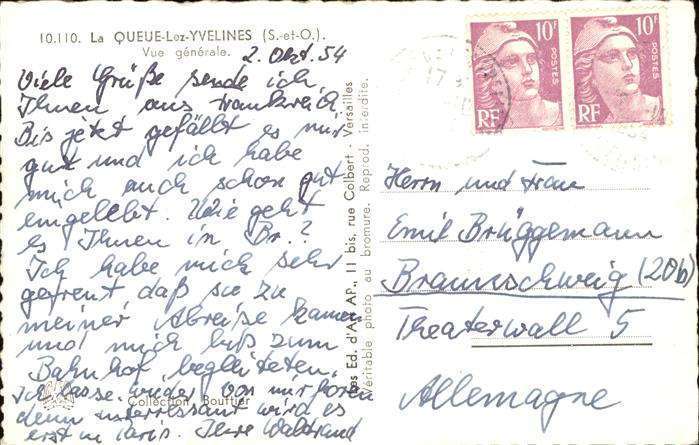 10.110. La QUEUE-Lez-YVELINES (S.-et-O.).
Vue générale.
2. Okt. 54
Viele Grüße sende ich
Ihnen aus Frankreich
Bis jetzt gefällt es mir
gut und ich habe
mich auch schon gut
eingelebt. Wie geht
es Ihnen in Br.?
Ich habe mich sehr
gefreut, daß sie zu
meiner Abreise kamen
und mich biß zum
Bahnhof begleiteten.
Ich lasse wieder von mir hören
denn interressant wird es
erst in Paris. Ihre Waltraud
Collection Bouttier
Les Ed. d'Art AP., 11 bis, rue Colbert - Versailles
Véritable photo au bromure. Reprod. interdite.
10F
POSTES
RF
10F
POSTES
RF
Herrn und Frau
Emil Brüggemann
Braunschweig (20b)
Theaterwall 5
Allemagne